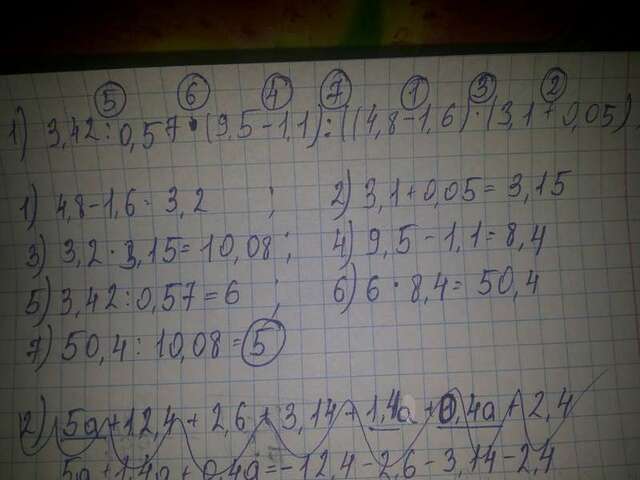 5 6 4 7 1 3 2
1) 3,42 : 0,57 · (9,5 - 1,1) : ((4,8 - 1,6) · (3,1 + 0,05)
1) 4,8 - 1,6 = 3,2 ; 2) 3,1 + 0,05 = 3,15
3) 3,2 · 3,15 = 10,08 ; 4) 9,5 - 1,1 = 8,4
5) 3,42 : 0,57 = 6 ; 6) 6 · 8,4 = 50,4
7) 50,4 : 10,08 = 5
2) 5a + 12,4 + 2,6 + 3,14 + 1,4a + 0,4a + 2,4
5a + 1,4a + 0,4a = -12,4 - 2,6 - 3,14 - 2,4